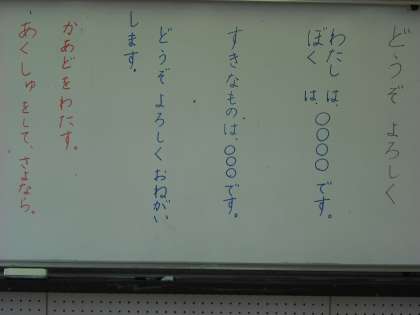 どうぞ よろしく
わたしは、
ぼくは、〇〇〇〇です。
すきなものは、〇〇〇です。
どうぞよろしくおねがい
します。
かあどをわたす。
あくしゅをして、さよなら。